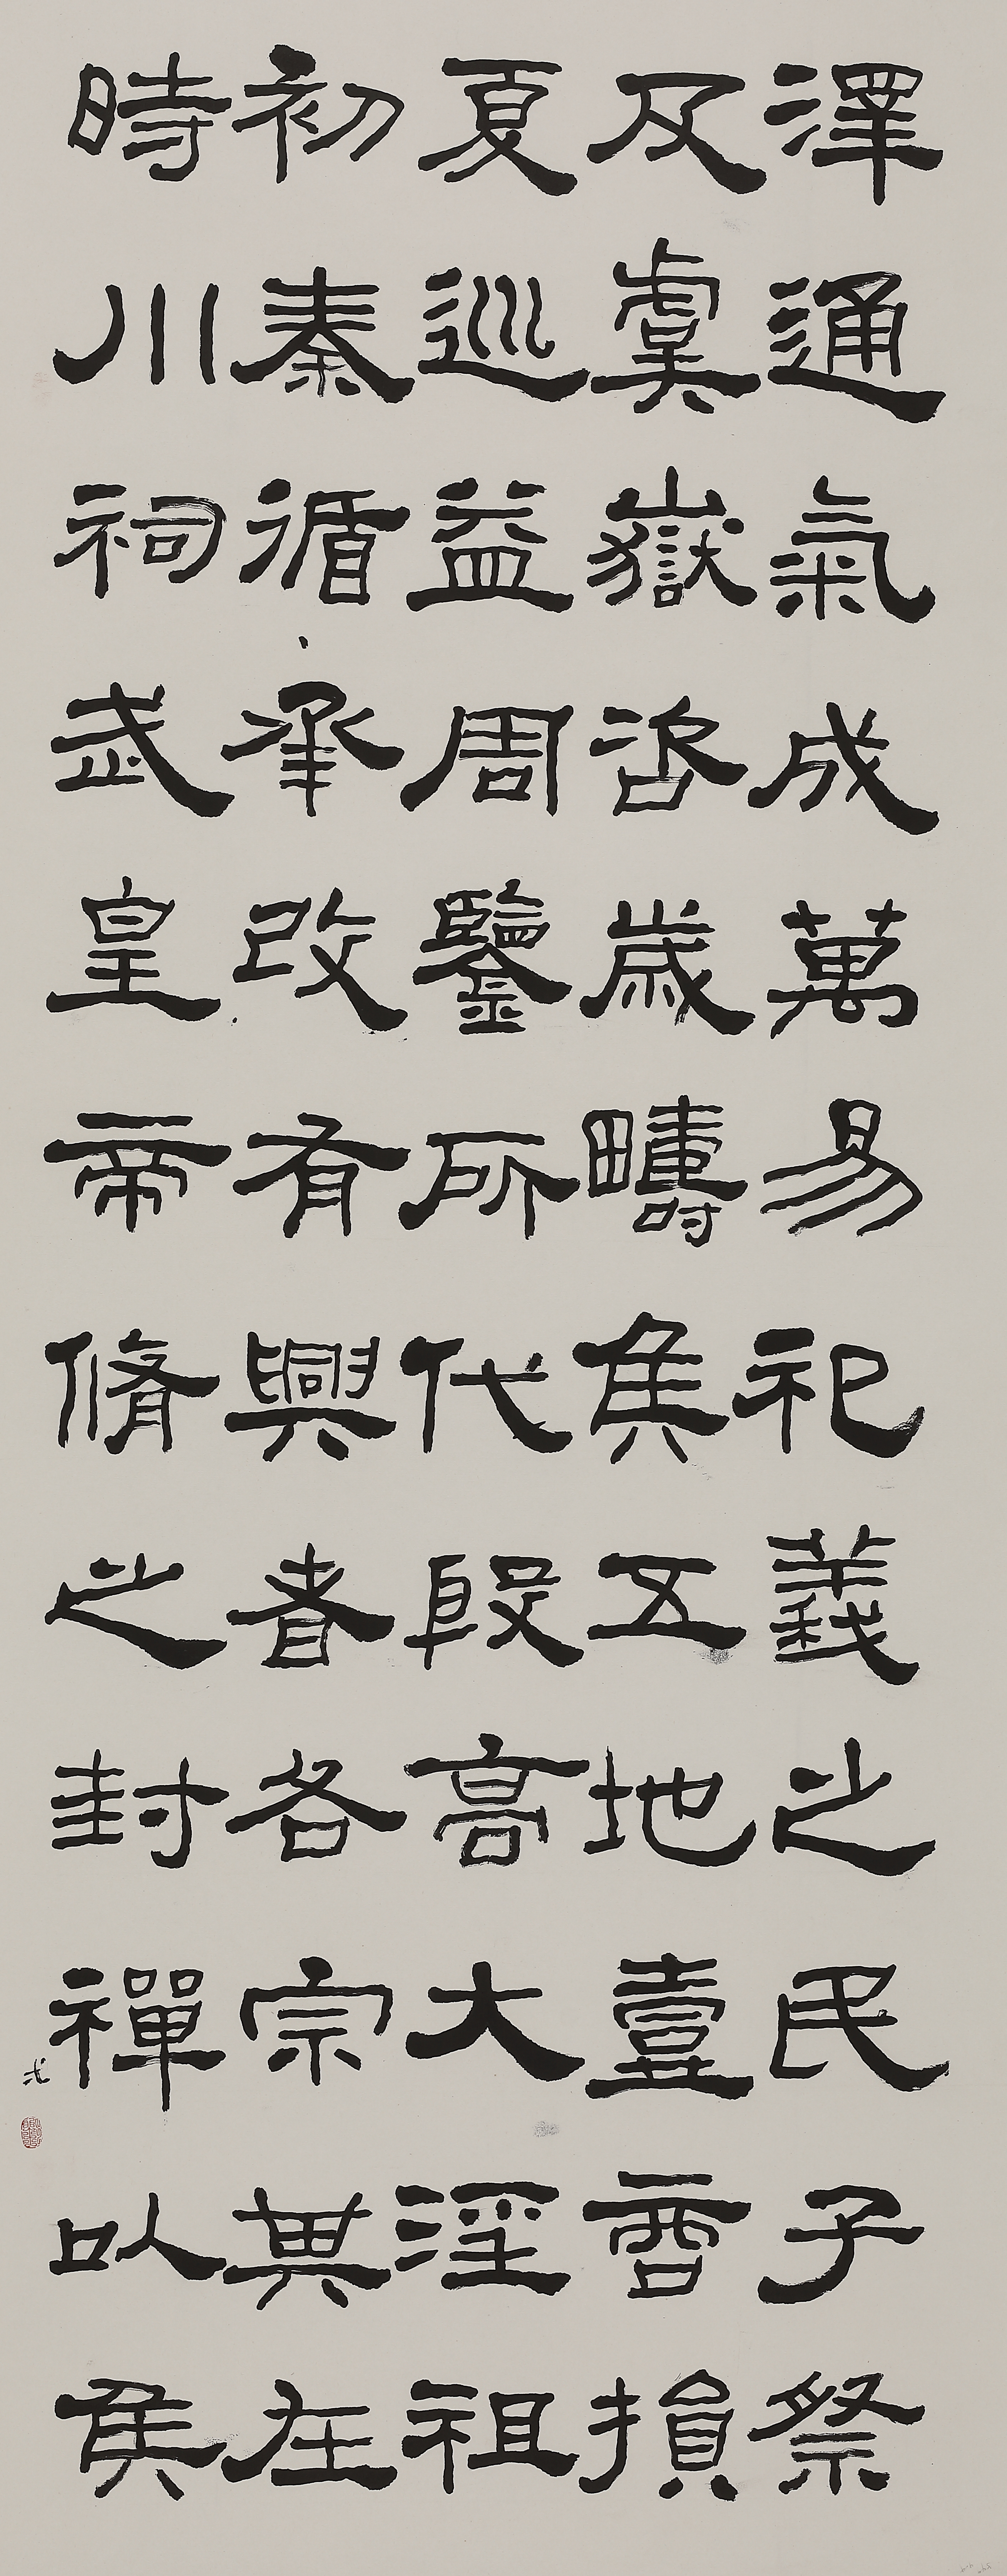 澤通氣成萬易祀義之民子祭
及虞嶽咨歲疇侯五地壹商損
夏巡益周鑒所代殷高大淫祖
初秦循承改有興者各宗其在
時川祠武皇帝脩之封禪以侯